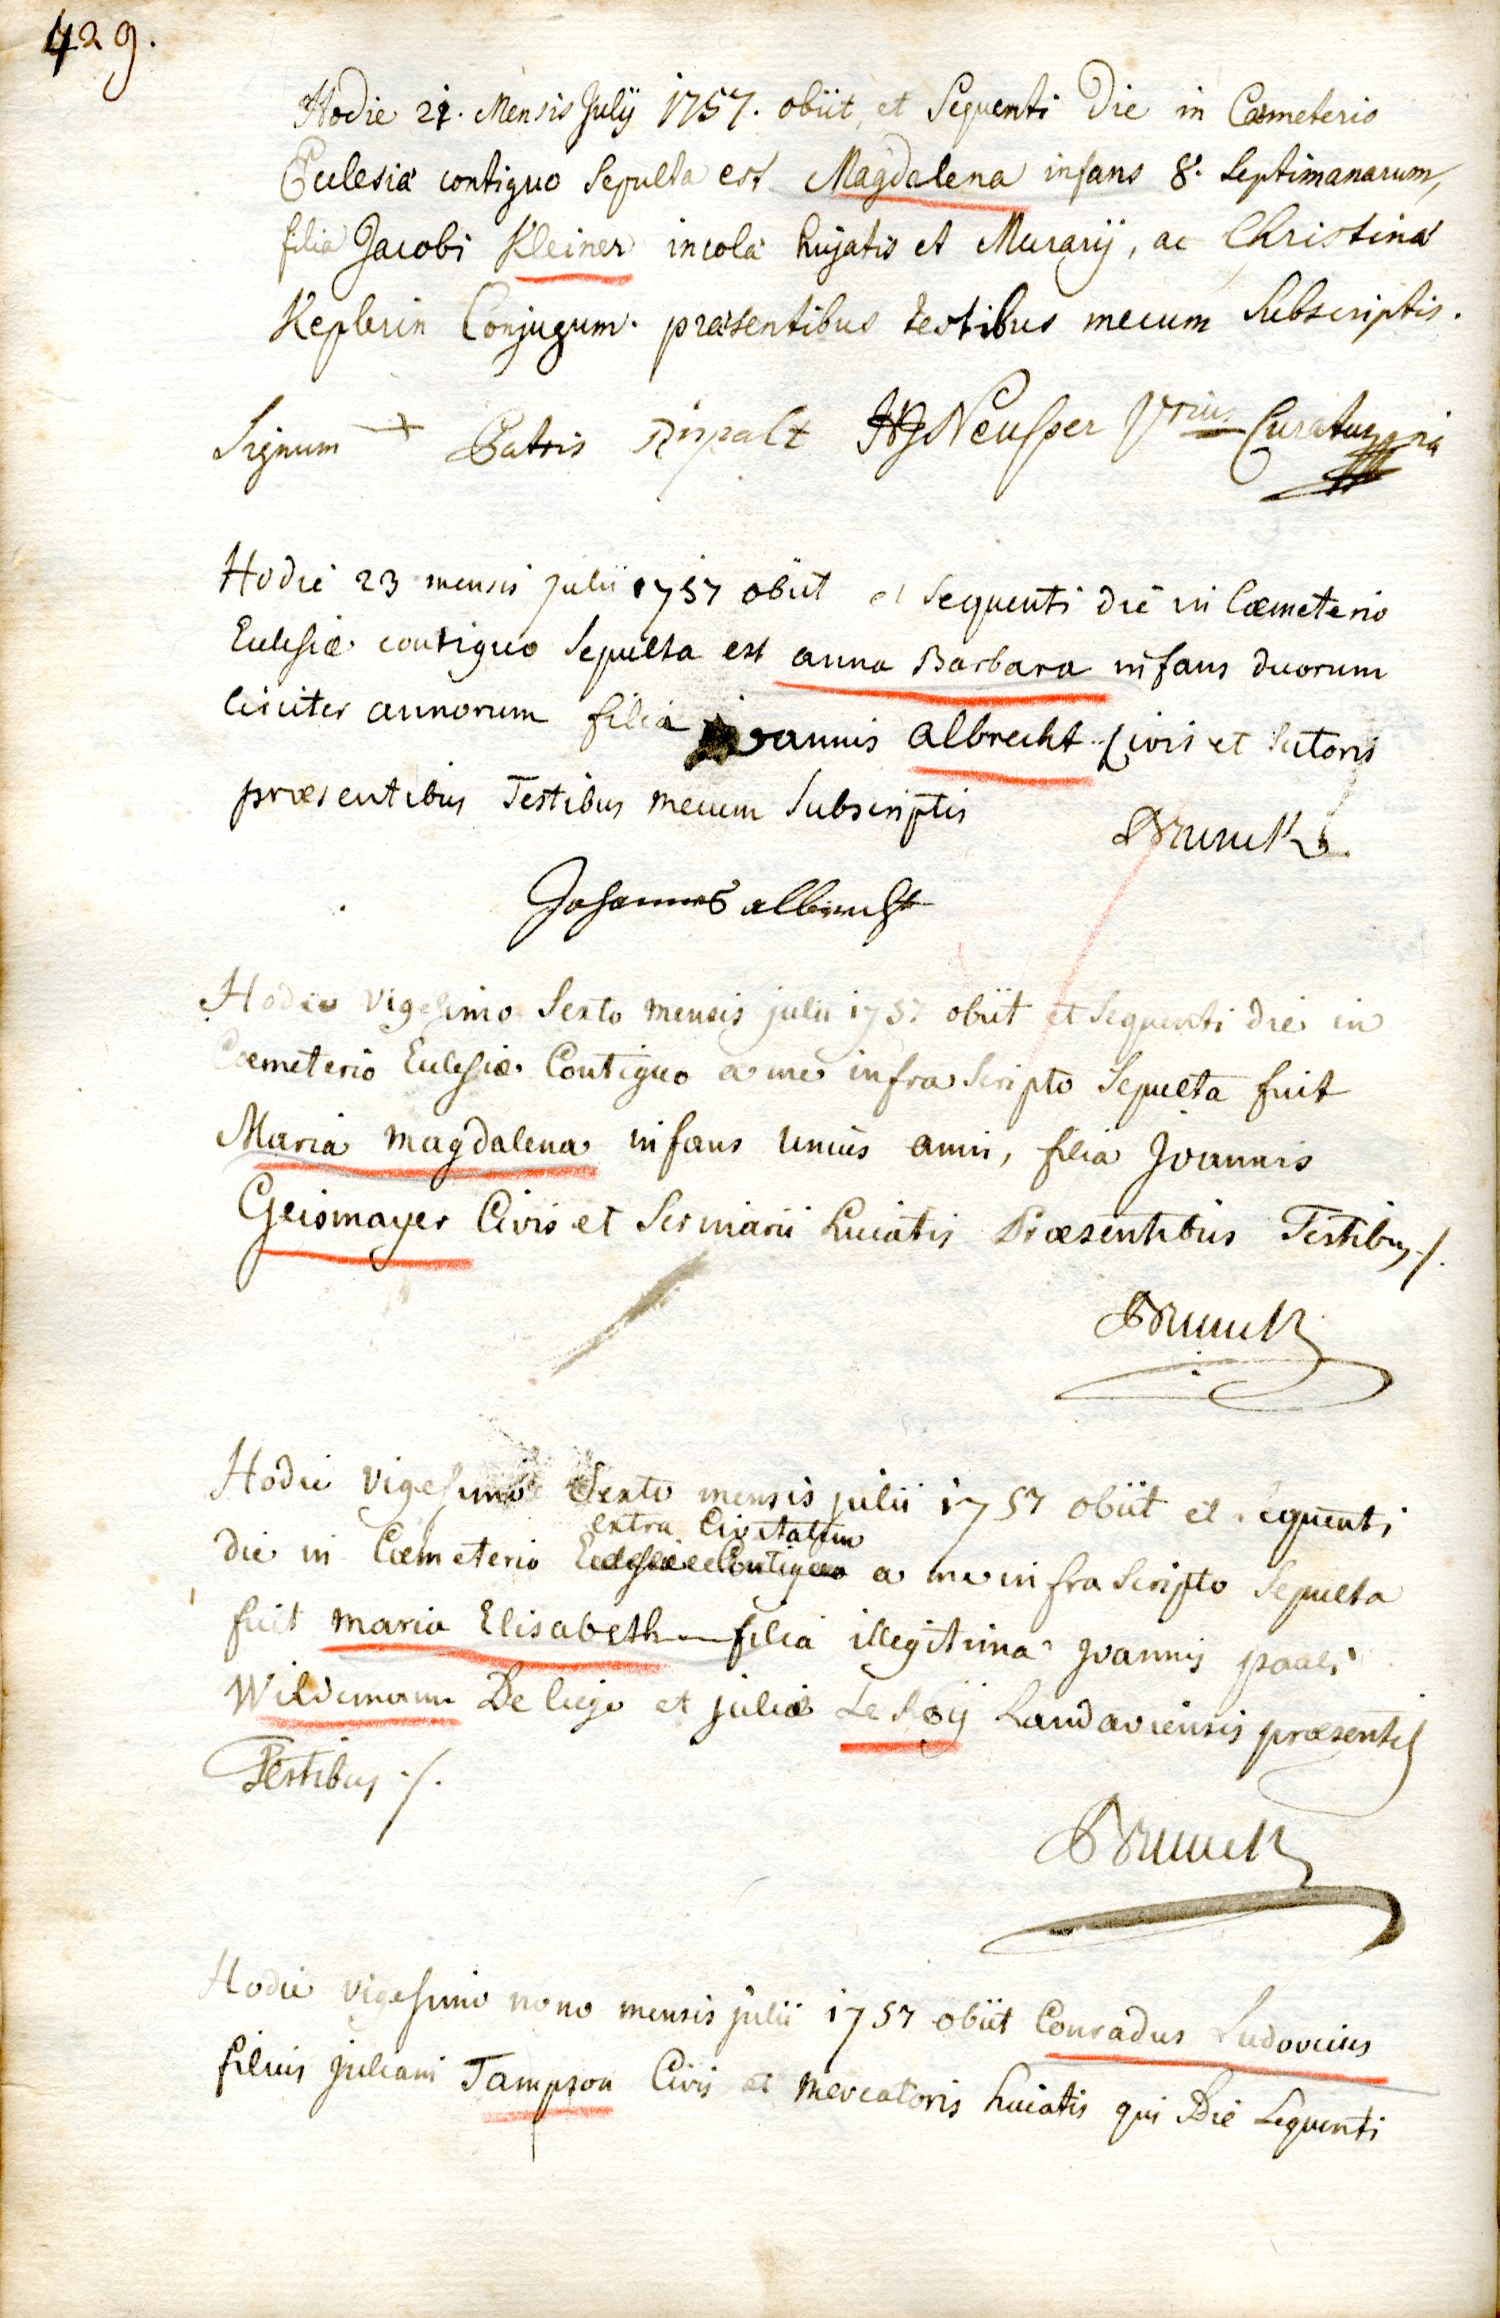 429.
Hodie 21. Mensis Julÿ 1757. obiit, et Sequenti Die in Cœmeterio
Ecclesiæ contiguo Sepulta est Magdalena infans 8. Septimanarum,
filia Jacobi Kleiner incolæ hujatis et Murarÿ, ac Christinæ
Keplerin Conjugum. præsentibus testibus mecum Subscriptis.
Signum + Patris Rispalt HJ Neusser Curatus
Hodie 23 mensis julii 1757 obiit et Sequenti die in Cœmeterio
Ecclesiæ contiguo Sepulta est anna Barbara infans duorum
Circiter annorum filia joannis albrecht Civis et Sutoris
præsentibus Testibus mecum Subscriptis Brunck
Johannes albrecht
Hodie vigesimo Sexto mensis julii 1757 obiit et Sequenti die in
Cœmeterio Ecclesiæ Contiguo a me infra Scripto Sepulta fuit
Maria magdalena infans unius anni, filia Joannis
Geismayer Civis et Serinarii huiatis Præsentibus Testibus ./.
Brunck
Hodie vigesimo Sexto mensis julii 1757 obiit et Sequenti
extra Civitatem
die in Cœmeterio Ecclesiæ Contiguo a me infra Scripto Sepulta
fuit maria Elisabeth filia illegitima Joannis pauli
Wildemann De liege et juliæ Le Roÿ Landaviensis præsentib
Testibus ./.
Brunck
Hodie vigesimo nono mensis julii 1757 obiit Conradus Ludovicus
filius juliani Tampson Civis et mercatoris huiatis qui Die Sequenti